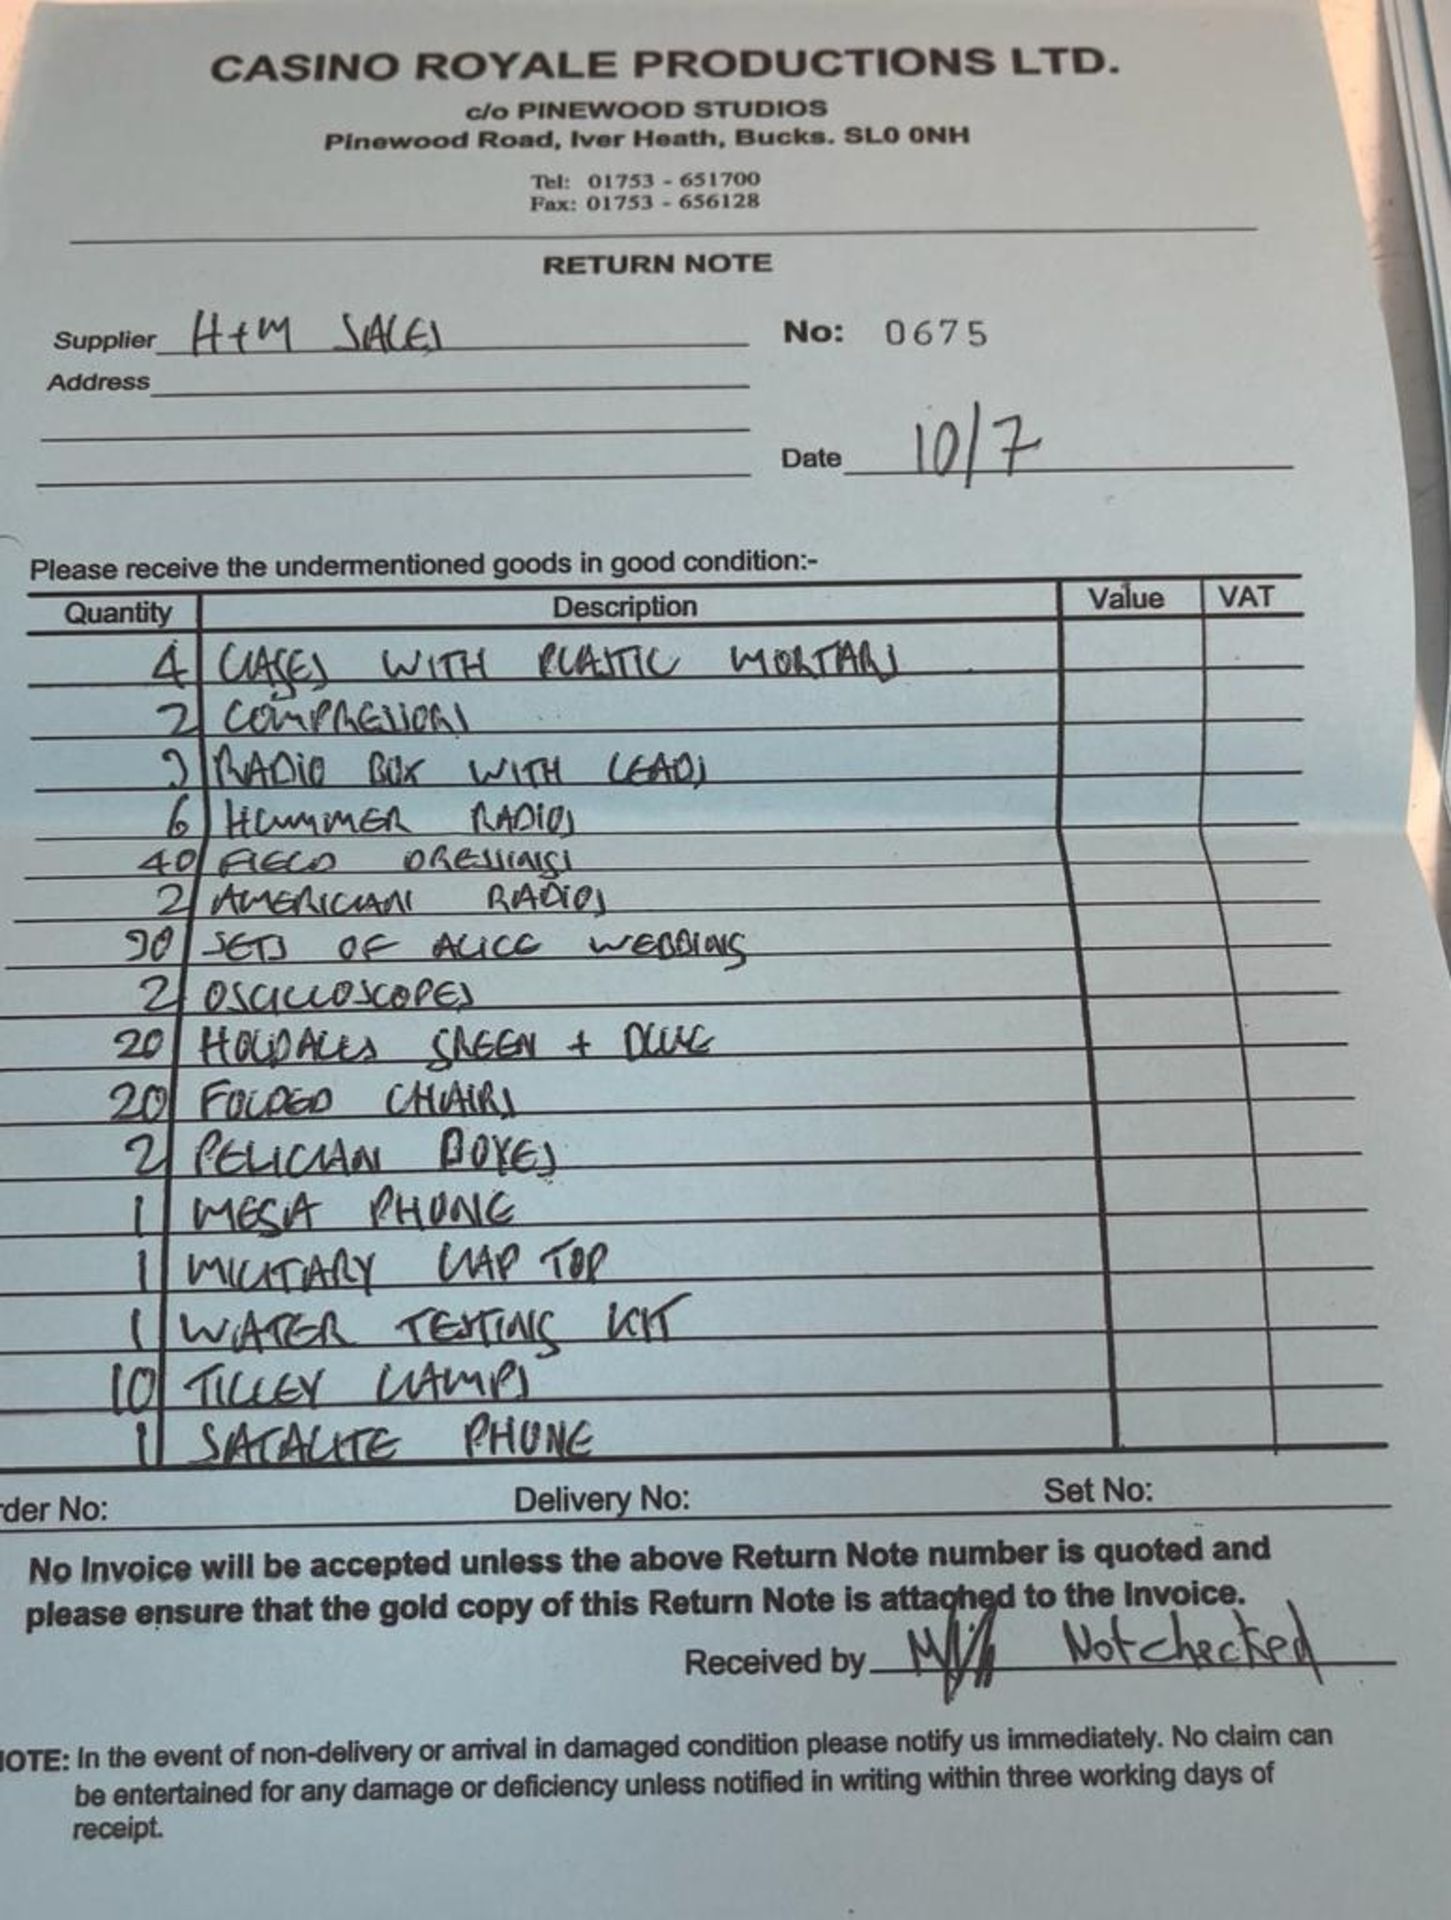 CASINO ROYALE PRODUCTIONS LTD.
c/o PINEWOOD STUDIOS
Pinewood Road, Iver Heath, Bucks. SL0 0NH
Tel: 01753 - 651700
Fax: 01753 - 656128
RETURN NOTE
Supplier H+M SALES No: 0675
Address
Date 10/7
Please receive the undermentioned goods in good condition:-
Quantity Description Value VAT
4 CASES WITH PLASTIC MORTARS
2 COMPRESSORS
RADIO BOX WITH LEADS
6 HUMMER RADIOS
40 FIELD DRESSINGS
2 AMERICAN RADIOS
SETS OF ALICE WEBBING
2 OSCILLOSCOPES
20 HOLDALLS GREEN + BLUE
20 FOLDED CHAIRS
2 PELICIAN BOXES
1 MEGA PHONE
1 MILITARY LAP TOP
1 WATER TESTING KIT
10 TILLEY LAMPS
1 SATALITE PHONE
rder No: Delivery No: Set No:
No Invoice will be accepted unless the above Return Note number is quoted and
please ensure that the gold copy of this Return Note is attached to the Invoice.
Received by Not checked
NOTE: In the event of non-delivery or arrival in damaged condition please notify us immediately. No claim can
be entertained for any damage or deficiency unless notified in writing within three working days of
receipt.